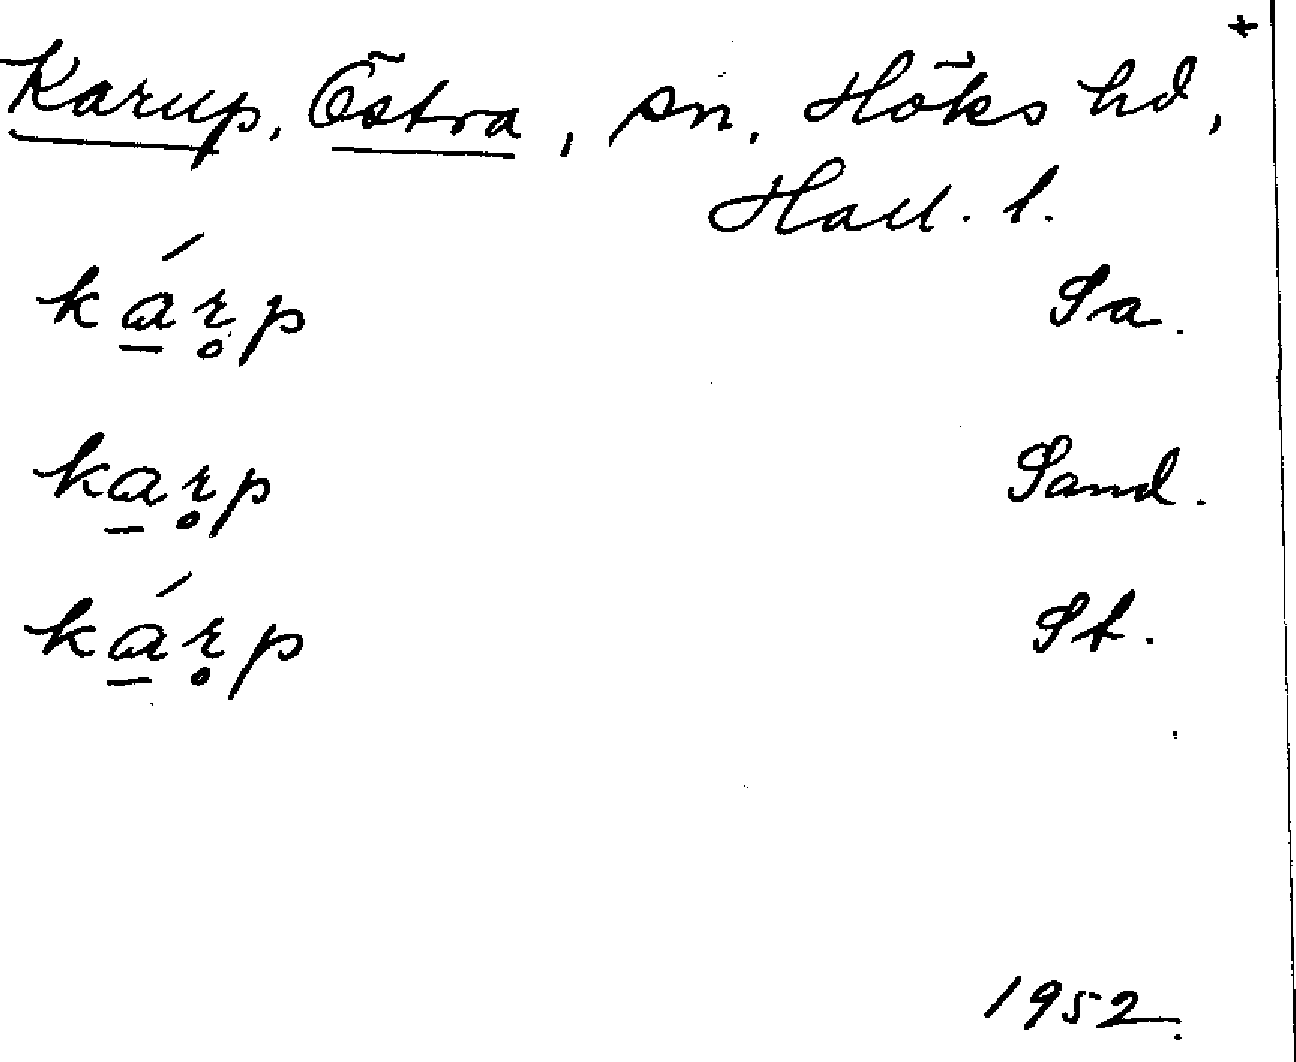 +
Karup, Östra, sn. Höks hd,
Hall. l.
ká̱r̥p Sa.
ka̱r̥p Sand.
ká̱r̥p St.
1952.